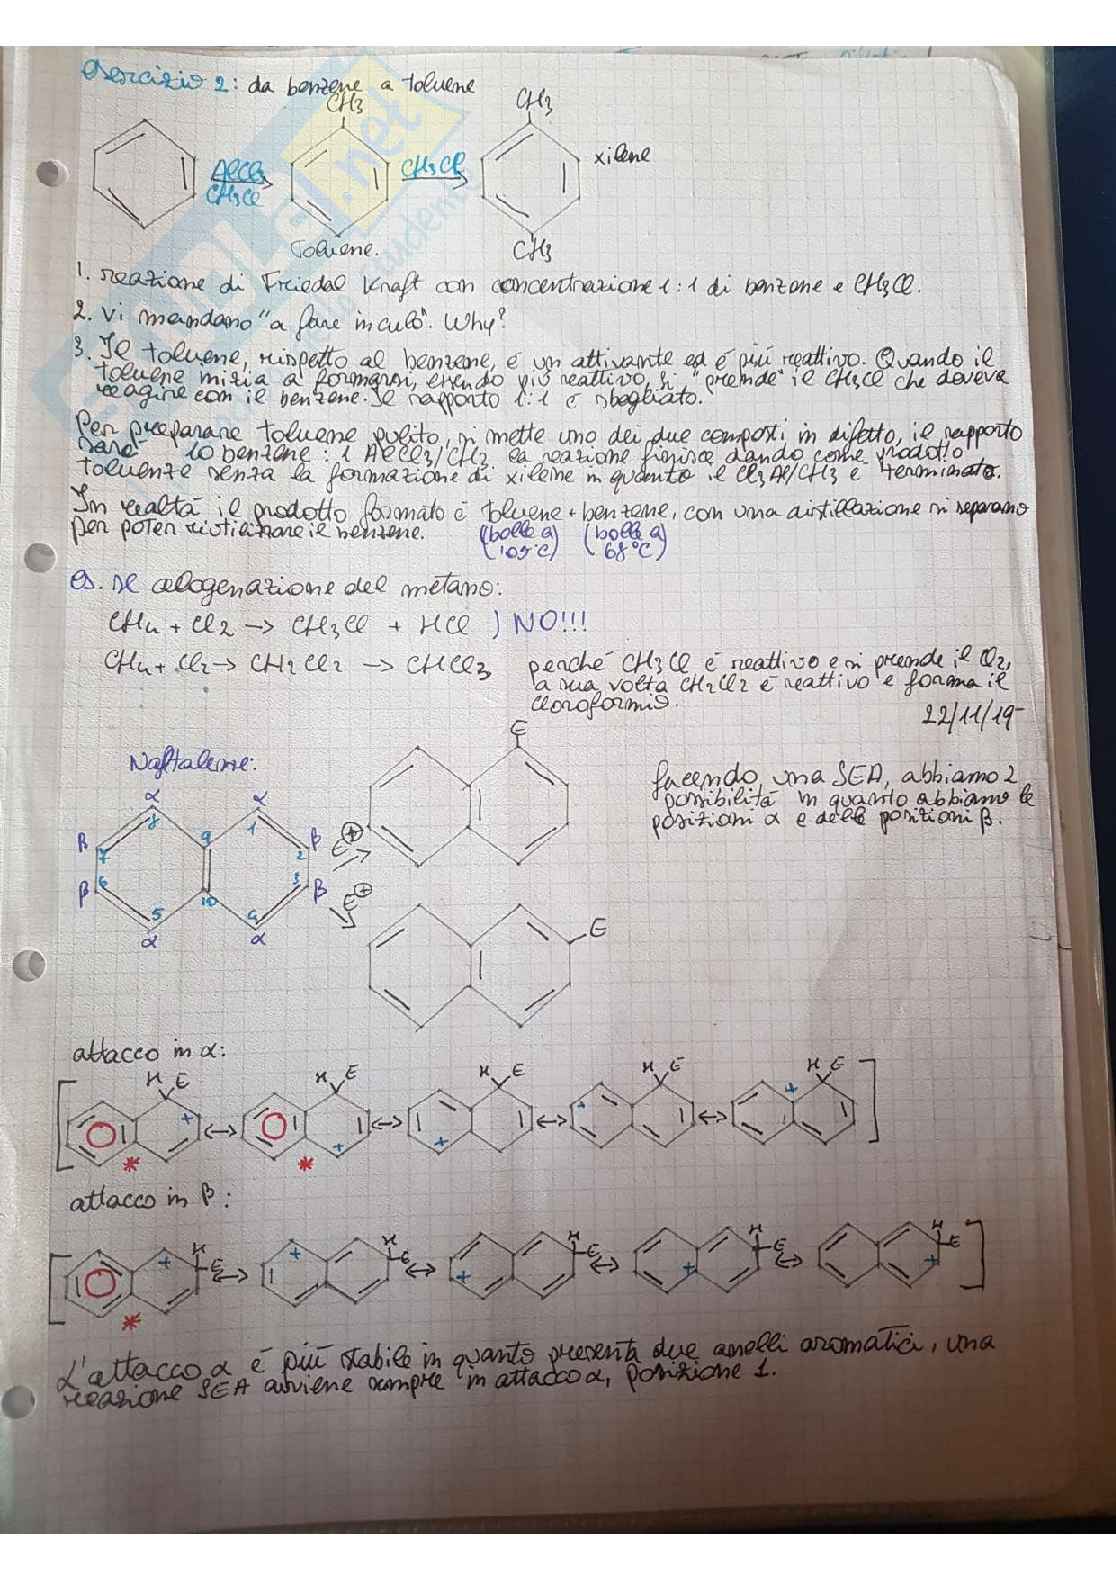 esercizio 2: da benzene a toluene
CH3
CH3
AlCl3
CH3Cl
CH3Cl
xilene
Toluene.
CH3
1. reazione di Friedal Kraft con concentrazione 1:1 di benzene e CH3Cl.
2. Vi mandano "a fare inculo". Why?
3. Il toluene, rispetto al benzene, è un attivante ed è più reattivo. Quando il
toluene inizia a formarsi, essendo più reattivo, si "prende" il CH3Cl che doveva
reagire con il benzene. Il rapporto 1:1 è sbagliato.
Per preparare toluene pulito, si mette uno dei due composti in difetto, il rapporto
sarà 10 benzene : 1 AlCl3/CH3 la reazione finisce dando come prodotto
toluene senza la formazione di xilene in quanto il Cl3Al/CH3 è terminato.
In realtà il prodotto formato è toluene + benzene, con una distillazione si separano
per poter riutilizzare il benzene.
(bolle a) (bolle a)
(105°C) (68°C)
es. se alogenazione del metano:
CH4 + Cl2 → CH3Cl + HCl ) NO!!!
CH4 + Cl2 → CH2Cl2 → CHCl3
perché CH3Cl è reattivo e si prende il Cl2,
a sua volta CH2Cl2 è reattivo e forma il
cloroformio.
22/11/19
Naftalene:
E
facendo una SEA, abbiamo 2
possibilità in quanto abbiamo le
posizioni α e delle posizioni β.
α α
8 1
β 7 9 2 β
E⊕
β 6 10 3 β
E⊕
5 4
α α
E
attacco in α:
H E H E H E H E H E
+ + + + +
* *
attacco in β:
H H H H H
E E E E E
+ + + + +
*
L'attacco α è più stabile in quanto presenta due anelli aromatici, una
reazione SEA avviene sempre in attacco α, posizione 1.